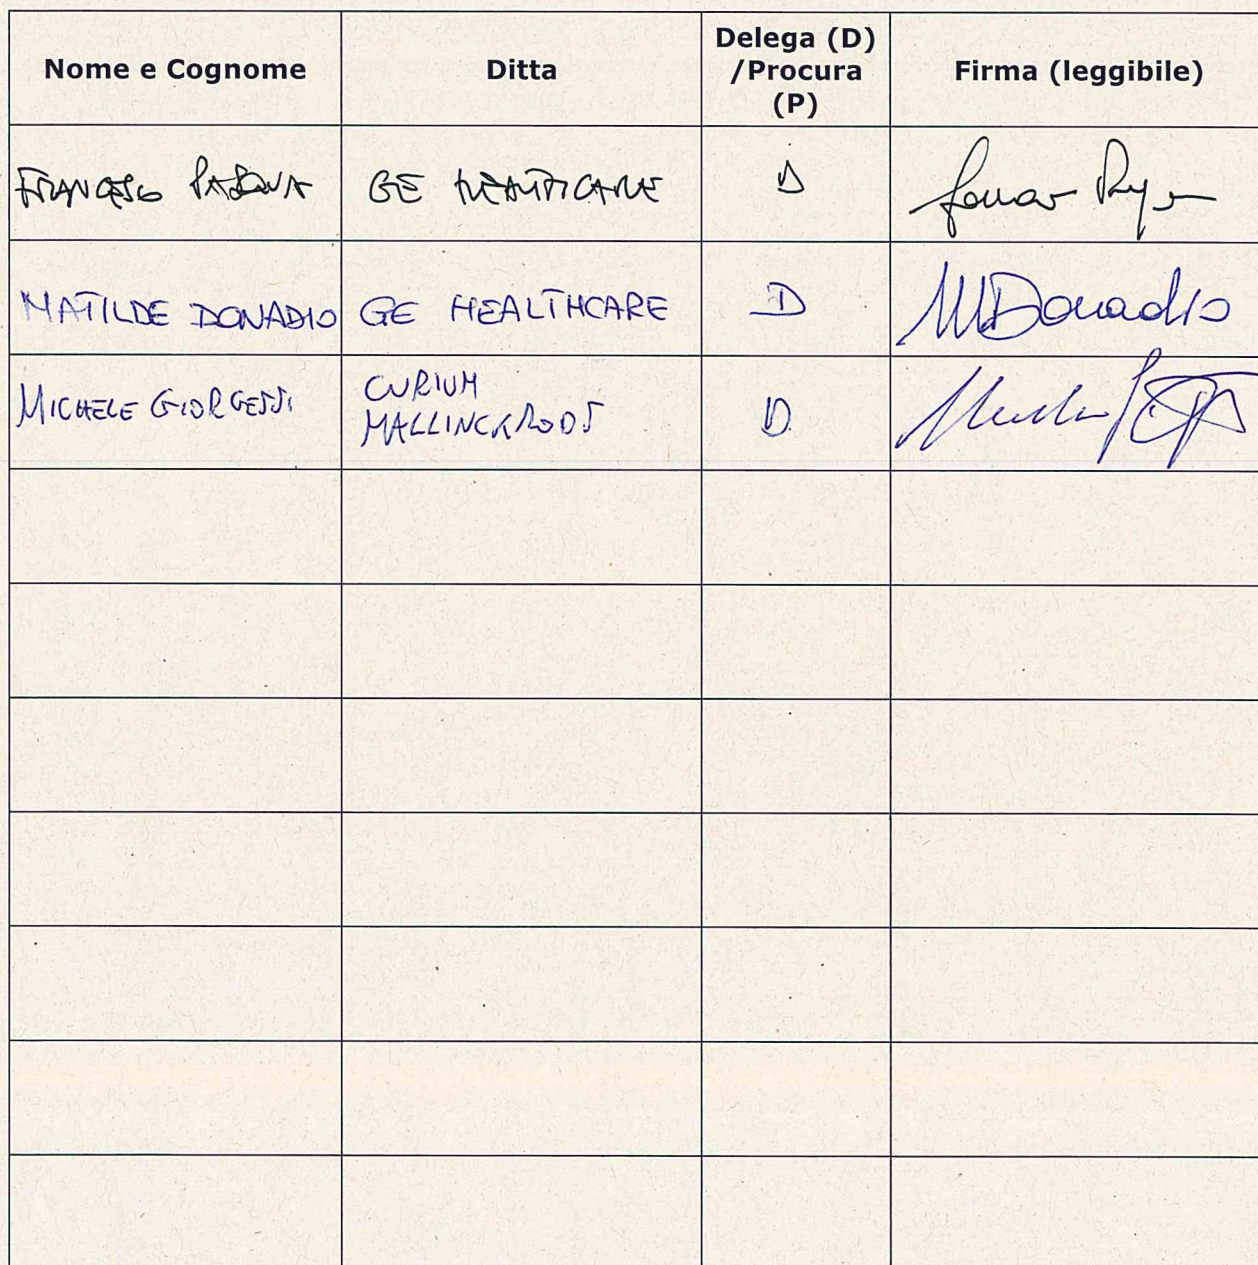 Nome e Cognome
Ditta
Delega (D)
/Procura
(P)
Firma (leggibile)
FRANCESCO
GE HEALTHCARE
D
MATILDE DONADIO
GE HEALTHCARE
D
MDonadio
MICHELE GIORGETTI
CURIUM
MALLINCKRODT
D